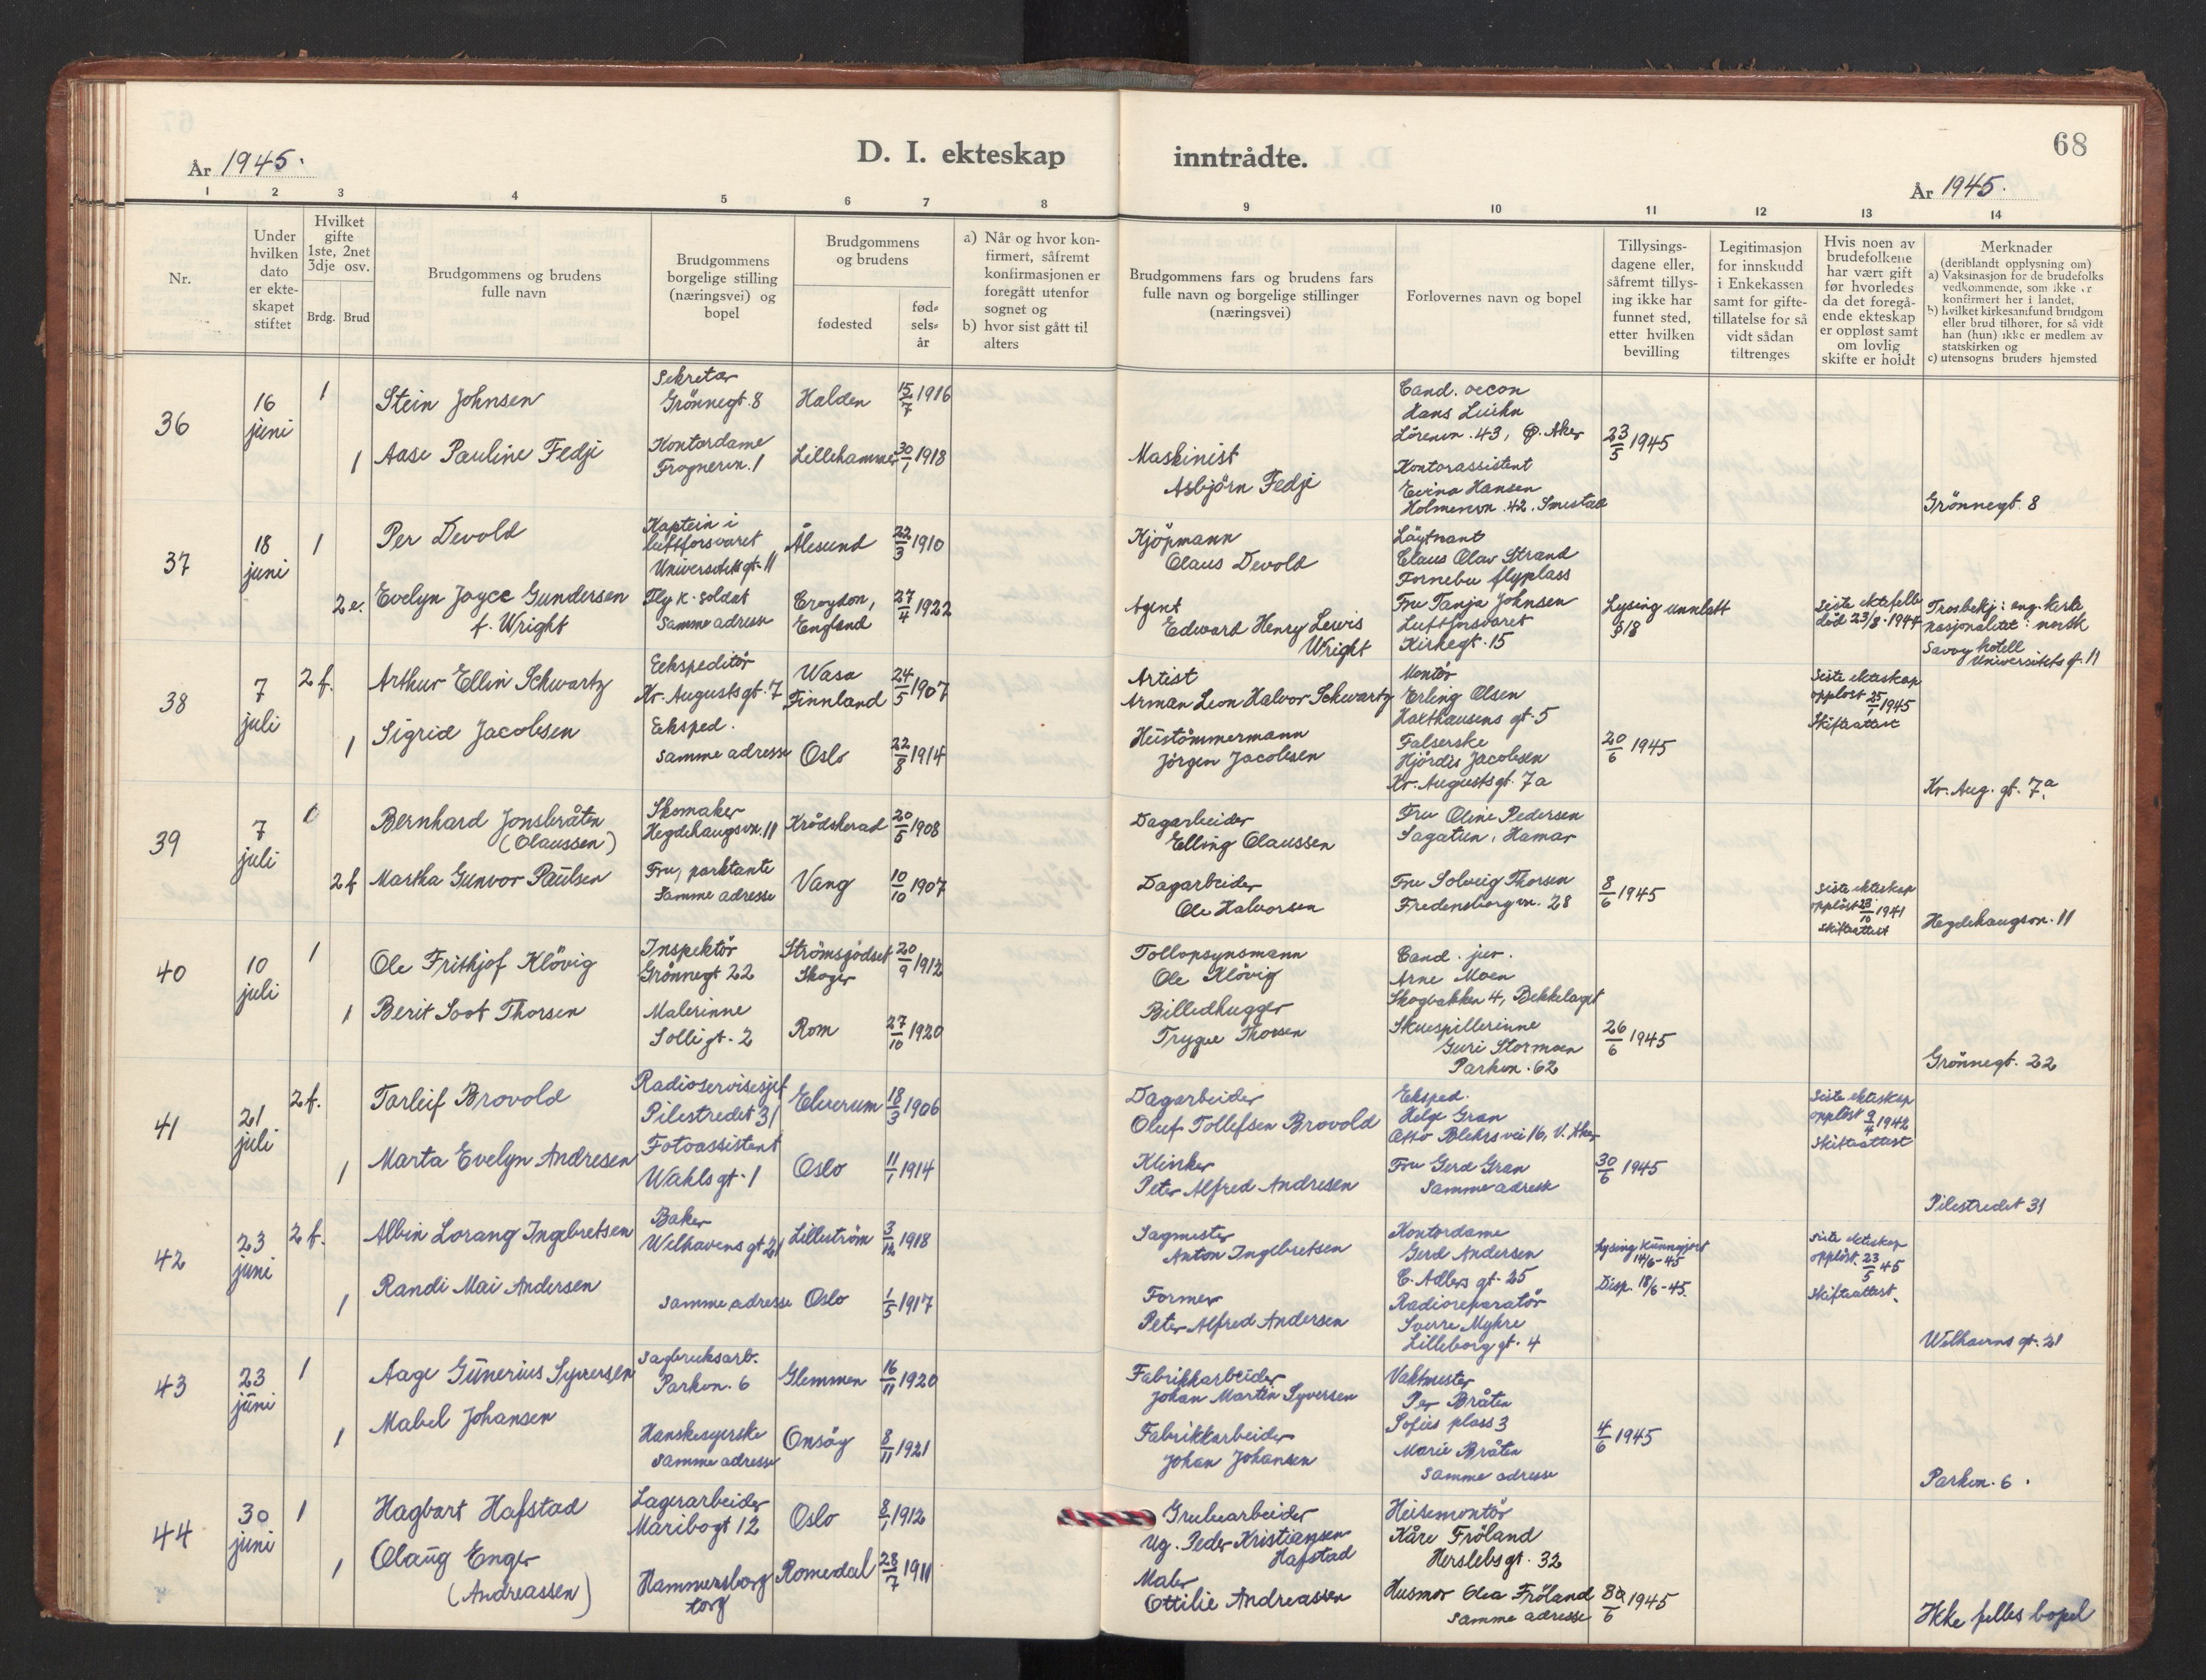 År 1945.
D. I. ekteskap
inntrådte.
68
År 1945.
1 2 3 4 5 6 7 8 9 10 11 12 13 14
Nr.
Under
hvilken
dato
er ekte-
skapet
stiftet
Hvilket
gifte
1ste, 2net
3dje osv.
Brdg. Brud
Brudgommens og brudens
fulle navn
Brudgommens
borgelige stilling
(næringsvei) og
bopel
Brudgommens
og brudens
fødested
fød-
sels-
år
a) Når og hvor kon-
firmert, såfremt
konfirmasjonen er
foregått utenfor
sognet og
b) hvor sist gått til
alters
Brudgommens fars og brudens fars
fulle navn og borgelige stillinger
(næringsvei)
Forlovernes navn og bopel
Tillysings-
dagene eller,
såfremt tillys-
ing ikke har
funnet sted,
etter hvilken
bevilling
Legitimasjon
for innskudd
i Enkekassen
samt for gifte-
tillatelse for så
vidt sådan
tiltrenges
Hvis noen av
brudefolkene
har vært gift
før hvorledes
da det foregå-
ende ekteskap
er oppløst samt
om lovlig
skifte er holdt
Merknader
(deriblandt opplysning om)
a) Vaksinasjon for de brudefolks
vedkommende, som ikke er
konfirmert her i landet,
b) hvilket kirkesamfund brudgom
eller brud tilhører, for så vidt
han (hun) ikke er medlem av
statskirken og
c) utensogns bruders hjemsted
36
16
juni
1
Stein Johnsen
Sekretær
Grönnegt. 8
Halden
15/7 1916
Cand. oecon
Hans Luihn
Lörenvn. 43, Ø. Aker
1
Aase Pauline Fedje
Kontordame
Frognervn. 1
Lillehammer
30/1 1918
Maskinist
Asbjörn Fedje
Kontorassistent
Hansen
Holmenvn. 42. Smestad
23/5 1945
Grönnegt. 8
37
18
juni
1
Per Devold
Kaptein i
luftforsvaret
Universitetsgt. 11
Ålesund
22/3 1910
Kjöpmann
Claus Devold
Löytnant
Claus Olav Strand
Fornebu flyplass
2 e.
Evelyn Joyce Gundersen
f. Wright
Fly k. soldat
Samme adresse
Croydon,
England
27/4 1922
Agent
Edward Henry Lewis
Wright
Fru Tanja Johnsen
Luftforsvaret
Kirkegt. 15
Lysing unnlatt
§ 18
Siste ektefelle
död 23/8-1944
Trosbekj: eng. kirke
nasjonalitet: norsk
Savoy hotell
Universitets g. 11
38
7
juli
2 f.
Arthur Ellin Schwartz
Eekspeditör
Kr. Augusts gt. 7
Wasa
Finnland
24/5 1907
Artist
Arman Leon Halvor Schwartz
Montör
Erling Olsen
Haxthausens gt. 5
Siste ekteskap
opplöst 25/1 1945
Skifteattest
1
Sigrid Jacobsen
Eksped.
Samme adresse
Oslo
22/8 1914
Heistömmermann
Jörgen Jacobsen
Falserske
Hjördis Jacobsen
Kr. Augustsgt. 7a
20/6 1945
Kr. Aug. gt. 7a.
39
7
juli
Bernhard Jonsbråten
(Olaussen)
Skomaker
Hegdehaugsvn. 11
Krödsherad
20/5 1908
Dagarbeider
Elling Olaussen
Fru Oline Pedersen
Sagatun, Hamar
2 f
Martha Gunvor Paulsen
Fru, parktante
Samme adresse
Vang
10/10 1907
Dagarbeider
Ole Halvorsen
Fru Solveig Thorsen
Fredensborgvn. 28
8/6 1945
Siste ekteskap
opplöst 23/10 1941
skifteattest
Hegdehaugsvn. 11
40
10
juli
1
Ole Frithjof Klövig
Inspektör
Grönnegt 22
Strömsgodset
Skoger
20/9 1912
Tollopsynsmann
Ole Klövig
Cand. jur.
Arne Moen
Skogbakken 4, Bekkelaget
1
Berit Soot Thorsen
Malerinne
Solli gt. 2
Rom
27/10 1920
Billedhugger
Trygve Thorsen
Skuespillerinne
Guri Stormoen
Parkvn. 62
26/6 1945
Grönnegt. 22
41
21
juli
2 f.
Torleif Brovold
Radioservisesjef
Pilestredet 31
Elverum
18/3 1906
Dagarbeider
Oluf Tollefsen Brovold
Eksped.
Helge Gran
Otto Blehrs vei 16, V. Aker
Siste ekteskap
opplöst 9/4 1942
Skifteattest
1
Marta Evelyn Andresen
Fotoassistent
Wahls gt. 1
Oslo
11/1 1914
Klinker
Peter Alfred Andresen
Fru Gerd Gran
Samme adresse
30/6 1945
Pilestredet 31
42
23
juni
2 f.
Albin Lorang Ingebretsen
Baker
Welhavens gt 21
Lilleström
3/12 1918
Sagmester
Anton Ingebretsen
Kontordame
Gerd Andersen
C. Adlers gt. 25
Lysing kunngjort
14/6-45
Disp. 18/6-45.
Siste ekteskap
opplöst. 23/5 45
Skifteattest.
1
Randi Mai Andersen
samme adresse
Oslo
1/5 1917
Former
Peter Alfred Andersen
Radioreparatör
Sverre Myhre
Lilleborg gt. 4
Welhavens gt. 21
43
23
juni
1
Aage Gunerius Syversen
Sagbruksarb.
Parkvn. 6
Glemmen
16/11 1920
Fabrikkarbeider
Johan Martin Syversen
Vaktmester
Per Bråten
Sofies plass 3
1
Mabel Johansen
Hanskesyerske
Samme adresse
Onsöy
8/11 1921
Fabrikkarbeider
Johan Johansen
Marie Bråten
Samme adresse
4/6 1945
Parkvn. 6.
44
30
juni
1
Hagbart Hafstad
Lagerarbeider
Maribogt 12
Oslo
8/1 1912
Grubearbeider
Ug. Peder Kristiansen
Hafstad
Heisemontör
Kåre Fröland
Herslebs gt. 32
1
Olaug Enger
(Andreassen)
Hammersborg
torg
Romedal
28/7 1911
Maler
Ottilie Andreassen
Husmor Olea Fröland
Samme adresse
1945
Ikke felles bopel